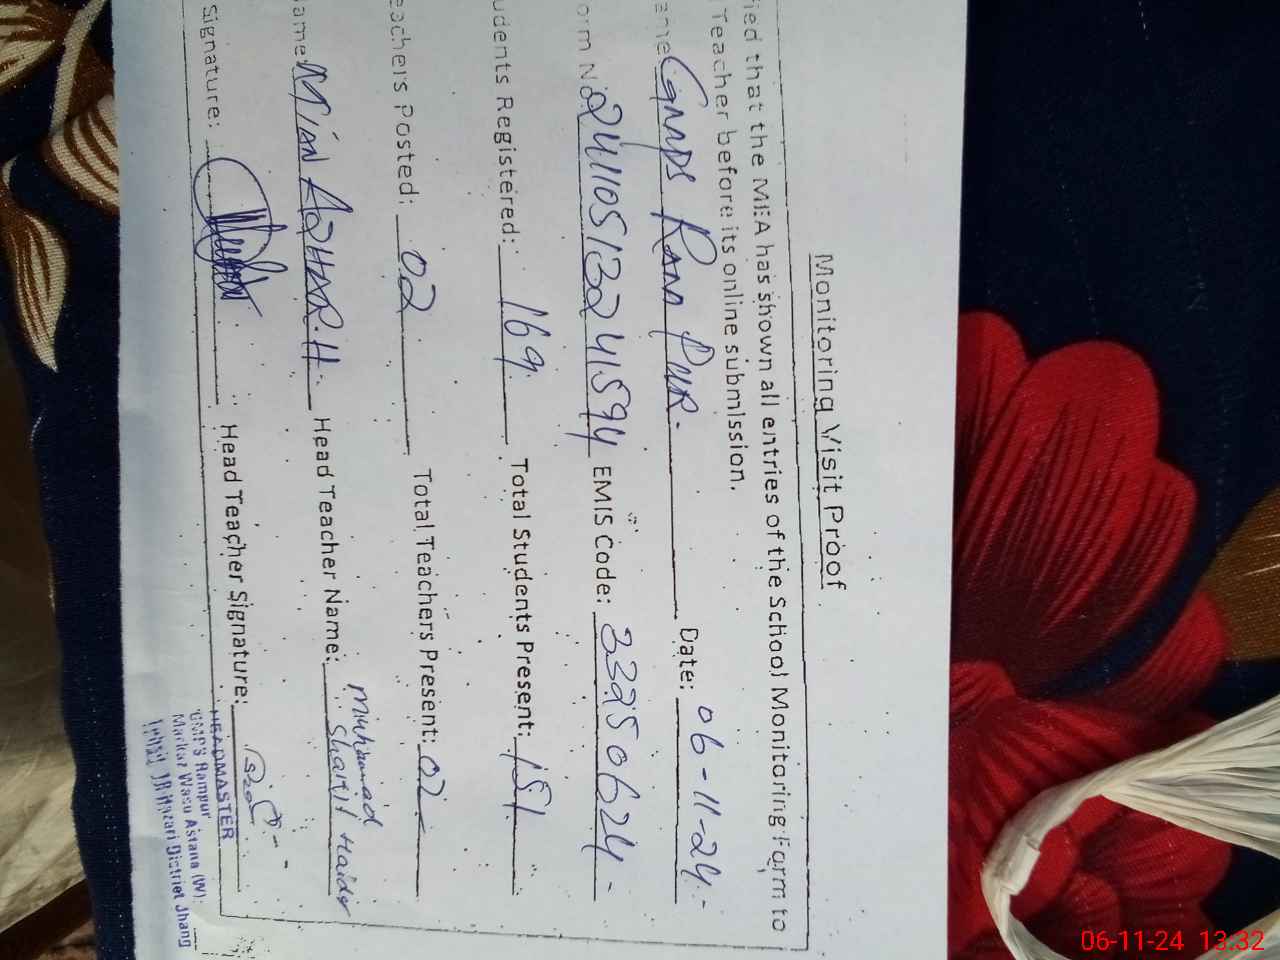 Monitoring Visit Proof
ied that the MEA has shown all entries of the School Monitoring Form to
Teacher before its online submission.
ame GMPS Ram PUR. Date: 06-11-24.-
orm N: 24110513241594 EMIS Code: 33250624-
udents Registered: 169. Total Students Present: 151
eachers Posted: 02 Total Teachers Present: 02
ame: MiAN AZHAR.H. Head Teacher Name: Muhammad Sharif Haider
Signature: Head Teacher Signature:
HEADMASTER
GMPS Rampur
Markaz Wasu Astana (W)
Tehsil 18 Hazari District Jhang
06-11-24 13:32